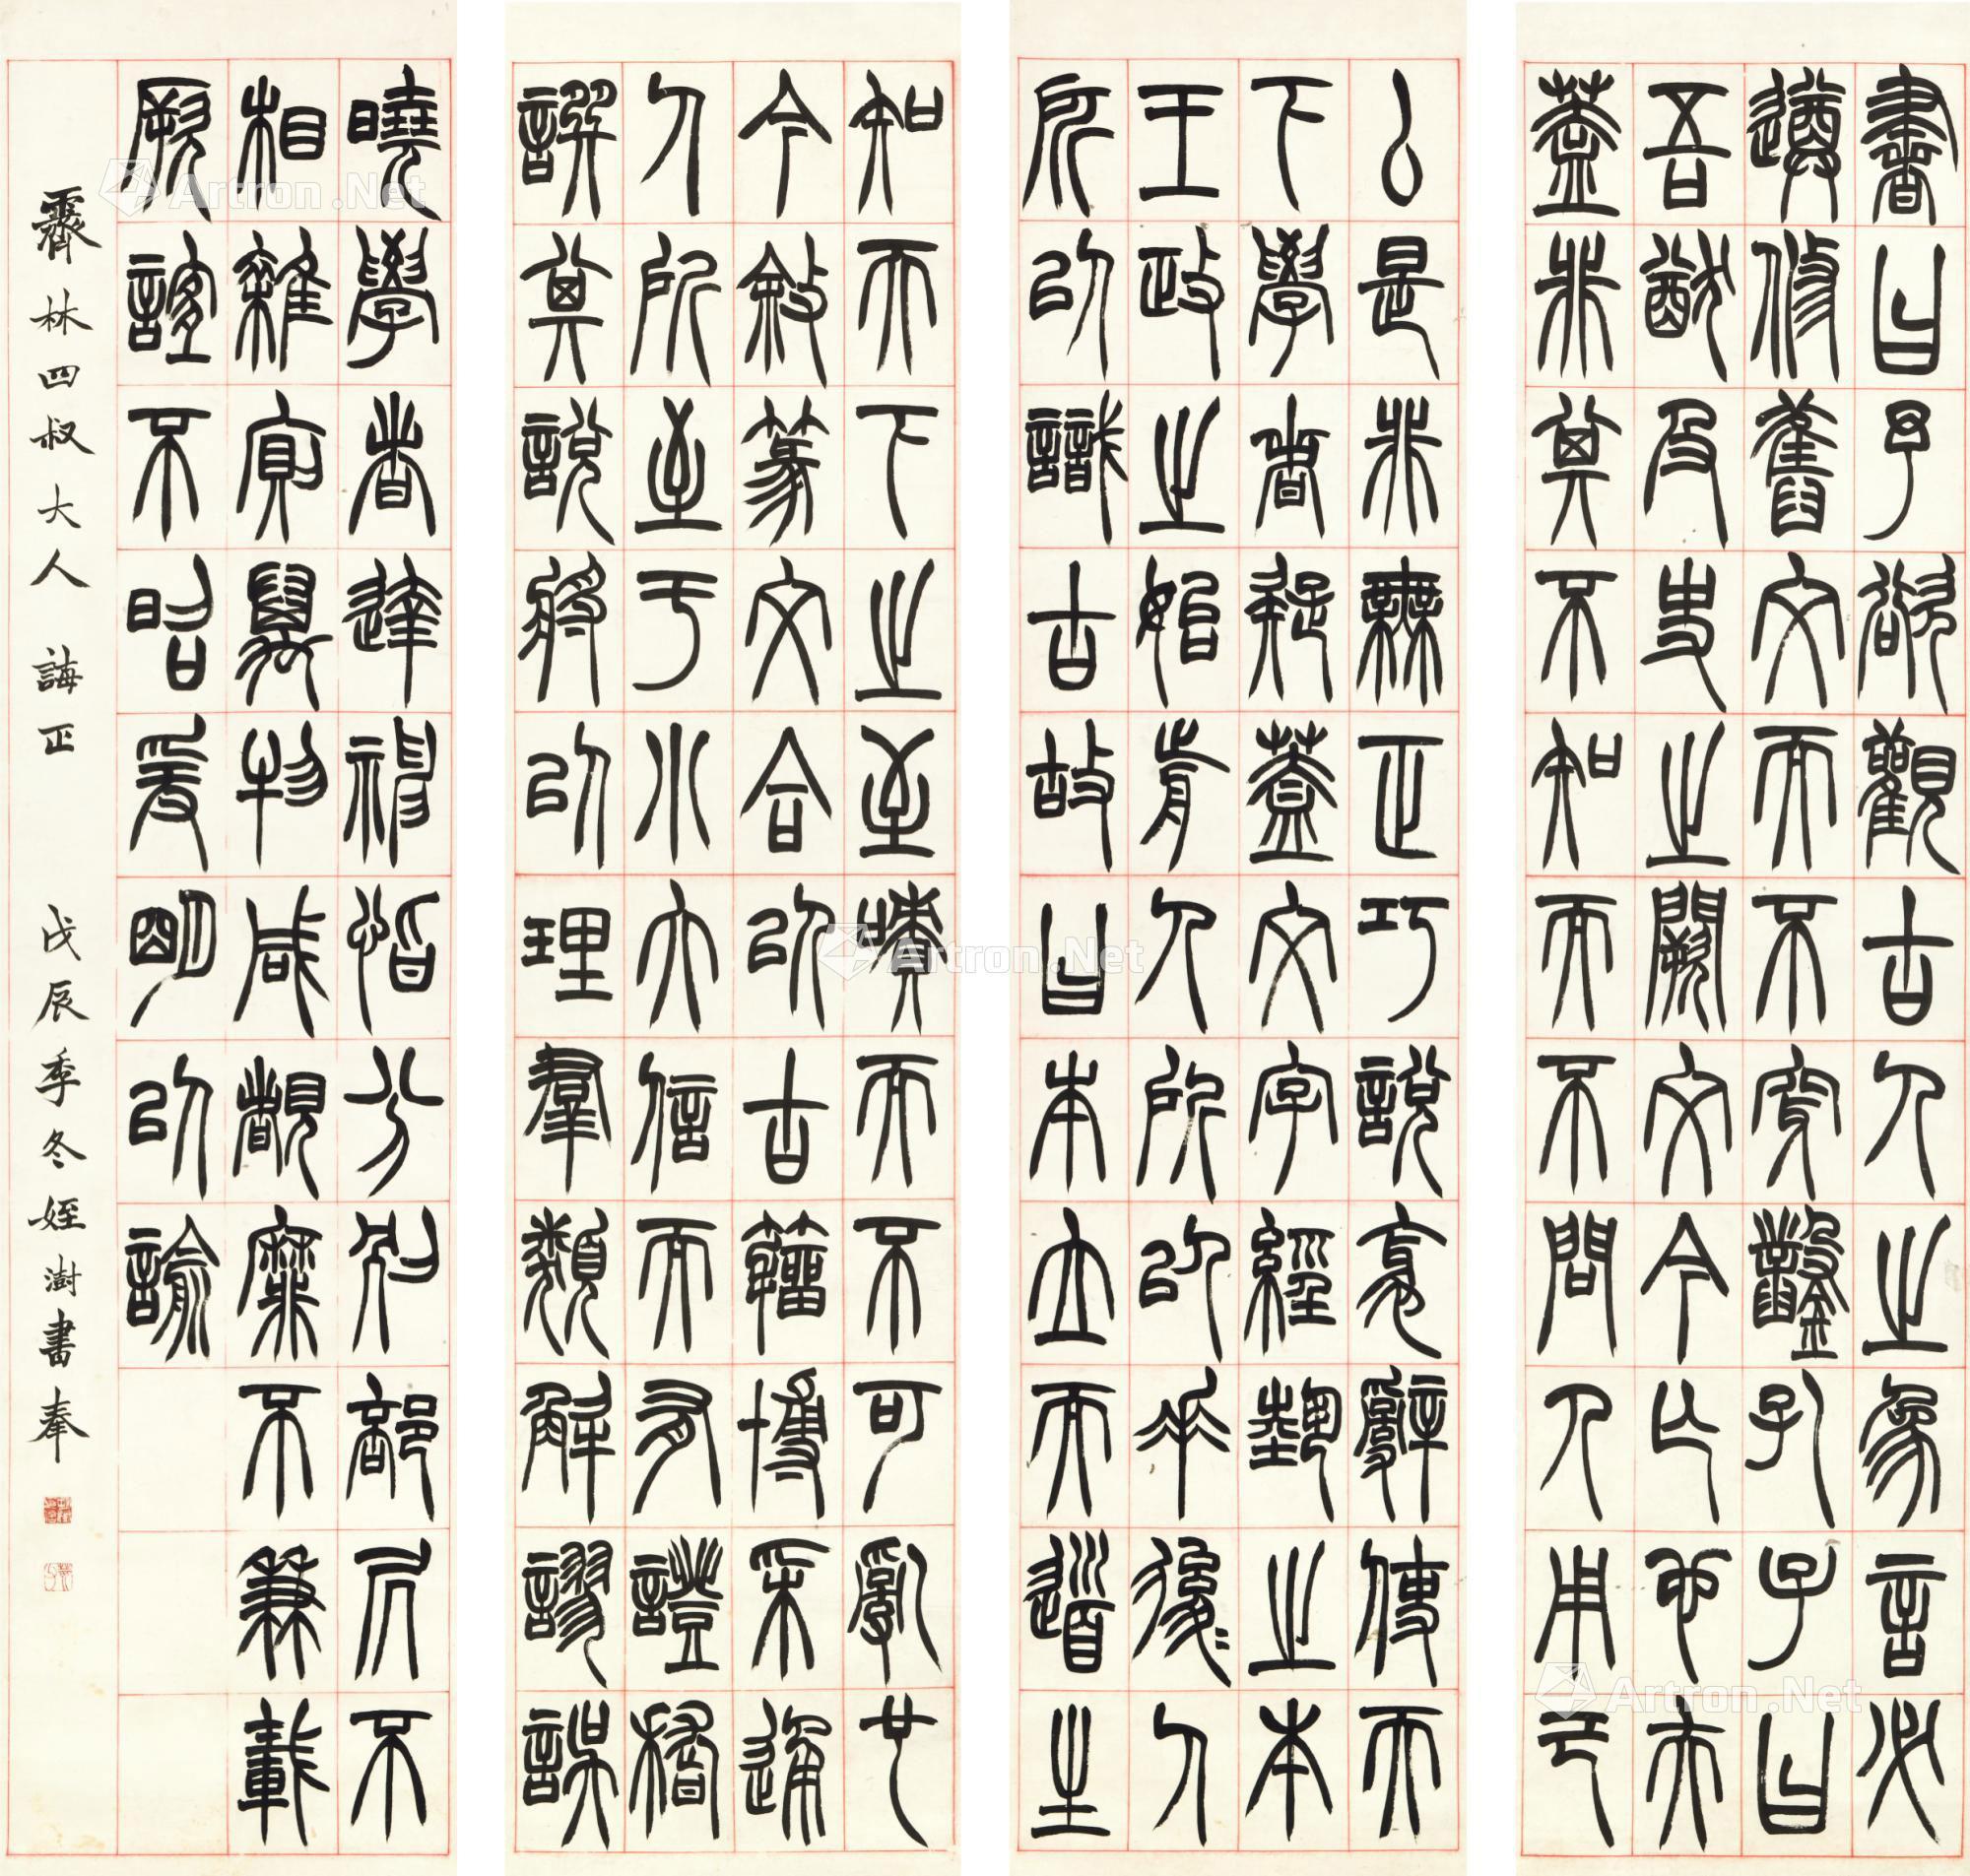 書曰予欲觀古人之象言必
遵修舊文而不穿鑿孔子曰
吾猶及史之闕文今亡也夫
蓋非其不知而不問人用己
厶是非無正巧說衺辭使天
下學者疑蓋文字經藝之本
王政之始前人所以垂後〻人
所以識古故曰本立而道生
知天下之至嘖而不可亂也
今敘篆文合以古籀博采通
人所至于小大信而有證稽
譔其說將以理羣類解謬誤
曉學者達神恉分別部居不
相雜廁萬物咸覩靡不兼載
厥誼不昭爰明以諭
霽林四叔大人 誨正 戊辰季冬姪澍書奉
Artron.Net
Artron.Net
Artron.Net